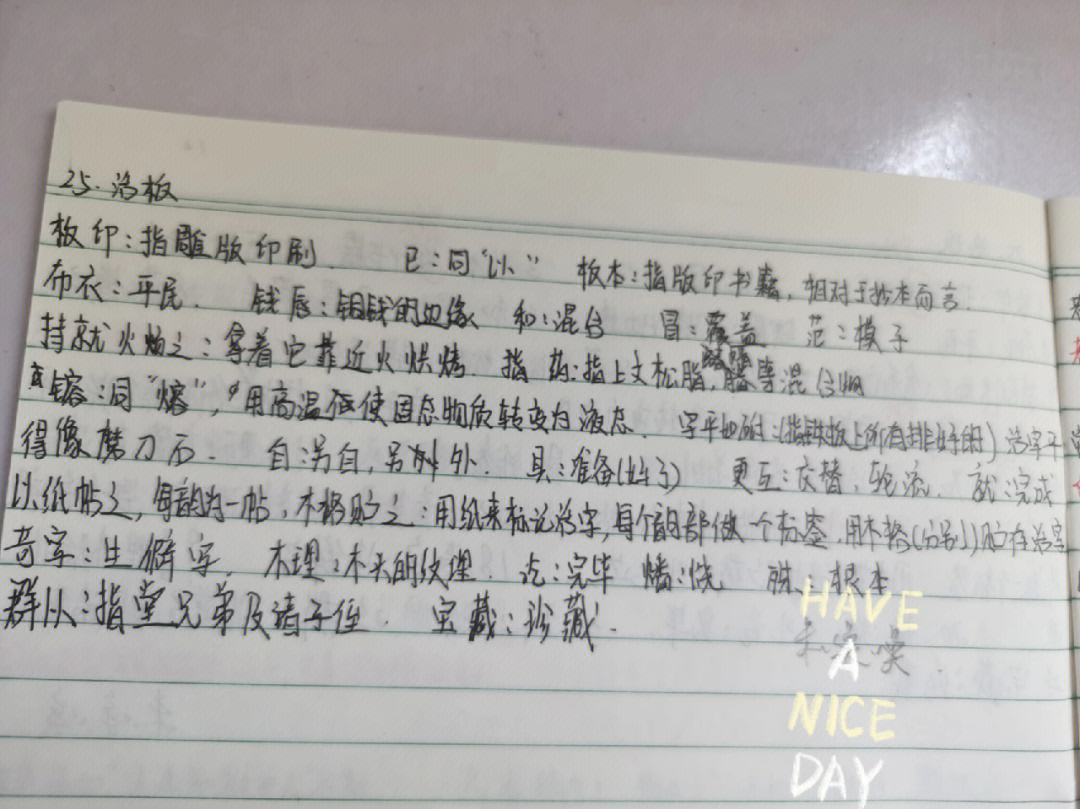 25.活板
板印:指雕版印刷. 已:同"以" 板本:指版印书籍,相对于抄本而言.
布衣:平民. 钱唇:铜钱的边缘 和:混合 冒:覆盖 范:模子
持就火炀之:拿着它靠近火烘烤. 指 药:指上文松脂,腊等混合物
镕:同"熔",用高温使固态物质转变为液态. 字平如砥:(指铁板上所有排好的)活字平
得像磨刀石. 自:另自,另外 具:准备(好了) 更互:交替,轮流. 就:完成
以纸帖之,每韵为一帖,木格贮之:用纸来标记活字,每个韵部做一个标签,用木格(分别)贮存活字
奇字:生僻字. 木理:木头的纹理. 讫:完毕 燔:烧 殊:根本
群从:指堂兄弟及诸子侄. 宝藏:珍藏.
HAVE
A
NICE
DAY